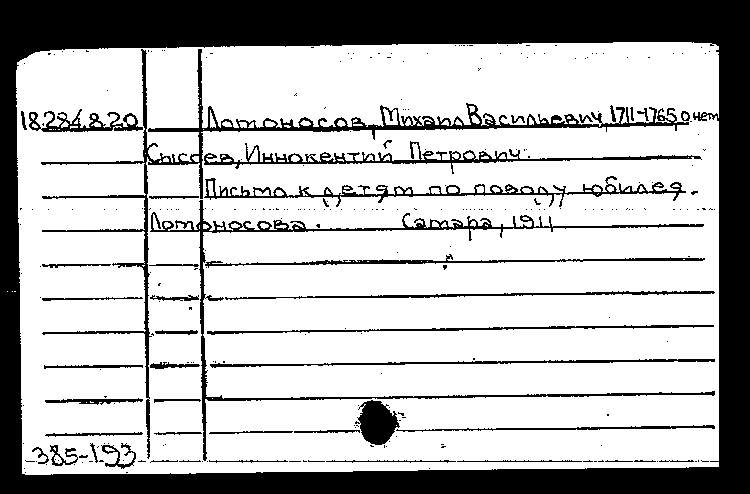 18.284.8.20 Ломоносов, Михаил Васильевич, 1711-1765, о нем
Сысоев, Иннокентий Петрович.
Письмо к детям по поводу юбилея
Ломоносова. Самара, 1911
385-193